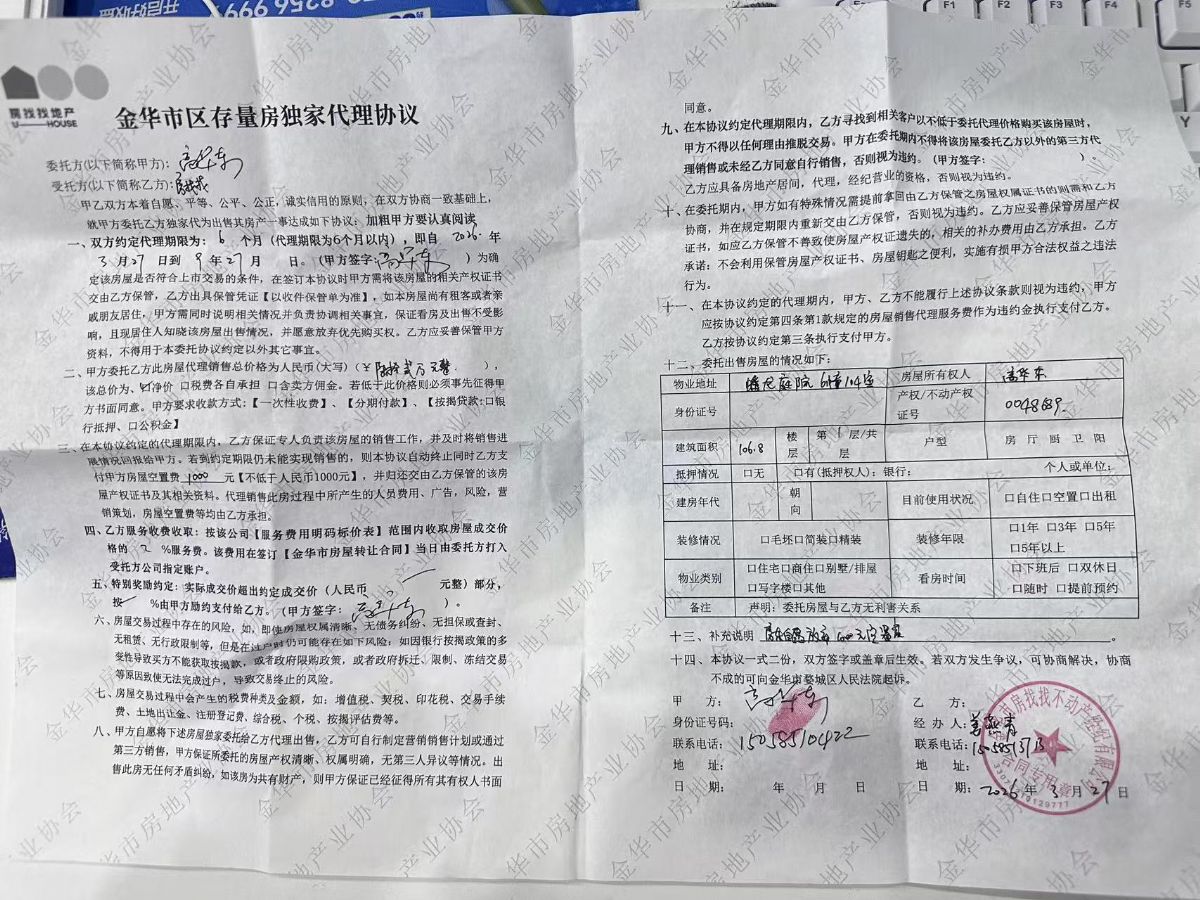 8256 999
F1
F2
F3
F4
F5
房找找地产
U HOUSE
金华市区存量房独家代理协议
委托方(以下简称甲方):高华东
受托方(以下简称乙方):房找找
甲乙双方本着自愿、平等、公平、公正,诚实信用的原则,在双方协商一致基础上,
就甲方委托乙方独家代为出售其房产一事达成如下协议:加粗甲方要认真阅读
一、双方约定代理期限为: 6 个月(代理期限为6个月以内),即自 2026 年
3月27 日到 9 年 27 月 日。(甲方签字:高华东 )为确
定该房屋是否符合上市交易的条件,在签订本协议时甲方需将该房屋的相关产权证书
交由乙方保管,乙方出具保管凭证【以收件保管单为准】,如本房屋尚有租客或者亲
戚朋友居住,甲方需同时说明相关情况并负责协调相关事宜,保证看房及出售不受影
响,且现居住人知晓该房屋出售情况,并愿意放弃优先购买权。乙方应妥善保管甲方
资料,不得用于本委托协议约定以外其它事宜。
二、甲方委托乙方此房屋代理销售总价格为人民币(大写)(¥ 万元整 ),
该总价为、☑净价 口税费各自承担 口含卖方佣金。若低于此价格则必须事先征得甲
方书面同意。甲方要求收款方式:【一次性收费】、【分期付款】、【按揭贷款:口银
行抵押、口公积金】
三、在本协议约定的代理期限内,乙方保证专人负责该房屋的销售工作,并及时将销售进
展情况回报给甲方。若到约定期限仍未能实现销售的,则本协议自动终止同时乙方支
付甲方房屋空置费 1000 元【不低于人民币1000元】,并归还交由乙方保管的该房
屋产权证书及其相关资料。代理销售此房过程中所产生的人员费用、广告,风险,营
销策划,房屋空置费等均由乙方承担。
四、乙方服务收费收取:按该公司【服务费用明码标价表】范围内收取房屋成交价
格的 2 %服务费。该费用在签订【金华市房屋转让合同】当日由委托方打入
受托方公司指定账户。
五、特别奖励约定:实际成交价超出约定成交价(人民币 元整)部分,
按 %由甲方励约支付给乙方。(甲方签字:高华东 )。
六、房屋交易过程中存在的风险,如,即使房屋权属清晰、无债务纠纷、无担保或查封、
无租赁、无行政限制等,但是在过户时仍可能存在如下风险:如因银行按揭政策的多
变性导致买方不能获取按揭款,或者政府限购政策,或者政府拆迁、限制、冻结交易
等原因致使无法完成过户,导致交易终止的风险。
七、房屋交易过程中会产生的税费种类及金额,如:增值税、契税、印花税、交易手续
费、土地出让金、注册登记费、综合税、个税、按揭评估费等。
八、甲方自愿将下述房屋独家委托给乙方代理出售,乙方可自行制定营销销售计划或通过
第三方销售,甲方保证所委托的房屋产权清晰、权属明确,无第三人异议等情况。出
售此房无任何矛盾纠纷,如该房为共有财产,则甲方保证已经征得所有其有权人书面
同意。
九、在本协议约定代理期限内,乙方寻找到相关客户以不低于委托代理价格购买该房屋时,
甲方不得以任何理由推脱交易。甲方在委托期内不得将该房屋委托乙方以外的第三方代
理销售或未经乙方同意自行销售,否则视为违约。(甲方签字: )。
乙方应具备房地产居间,代理,经纪营业的资格,否则视为违约。
十、在委托期内,甲方如有特殊情况需提前拿回由乙方保管之房屋权属证书的则需和乙方
协商,并在规定期限内重新交由乙方保管,否则视为违约。乙方应妥善保管房屋产权
证书,如应乙方保管不善致使房屋产权证遗失的,相关的补办费用由乙方承担。乙方
承诺:不会利用保管房屋产权证书、房屋钥匙之便利,实施有损甲方合法权益之违法
行为。
十一、在本协议约定的代理期内,甲方、乙方不能履行上述协议条款则视为违约,甲方
应按协议约定第四条第1款规定的房屋销售代理服务费作为违约金执行支付乙方。
乙方按协议约定第三条执行支付甲方。
十二、委托出售房屋的情况如下:
物业地址 庭院 6幢104室 房屋所有权人 高华东
身份证号 产权/不动产权证号 0048689
建筑面积 106.8 楼层 第 1 层/共 层 户型 房 厅 厨 卫 阳
抵押情况 口无 口有(抵押权人):银行: 个人或单位:
建房年代 朝向 目前使用状况 口自住口空置口出租
装修情况 口毛坯口简装口精装 装修年限 口1年 口3年 口5年 口5年以上
物业类别 口住宅口商住口别墅/排屋 口写字楼口其他 看房时间 口下班后 口双休日 口随时 口提前预约
备注 声明:委托房屋与乙方无利害关系
十三、补充说明
十四、本协议一式二份,双方签字或盖章后生效。若双方发生争议,可协商解决,协商
不成的可向金华市婺城区人民法院起诉。
甲 方:高华东
身份证号码:
联系电话:15058510422
地 址:
日 期: 年 月 日
乙 方:
经 办 人:
联系电话:
地 址:
日 期:2026年 3 月 27 日
房找找不动产经纪有限公司
合同专用章
金华市房地产业协会